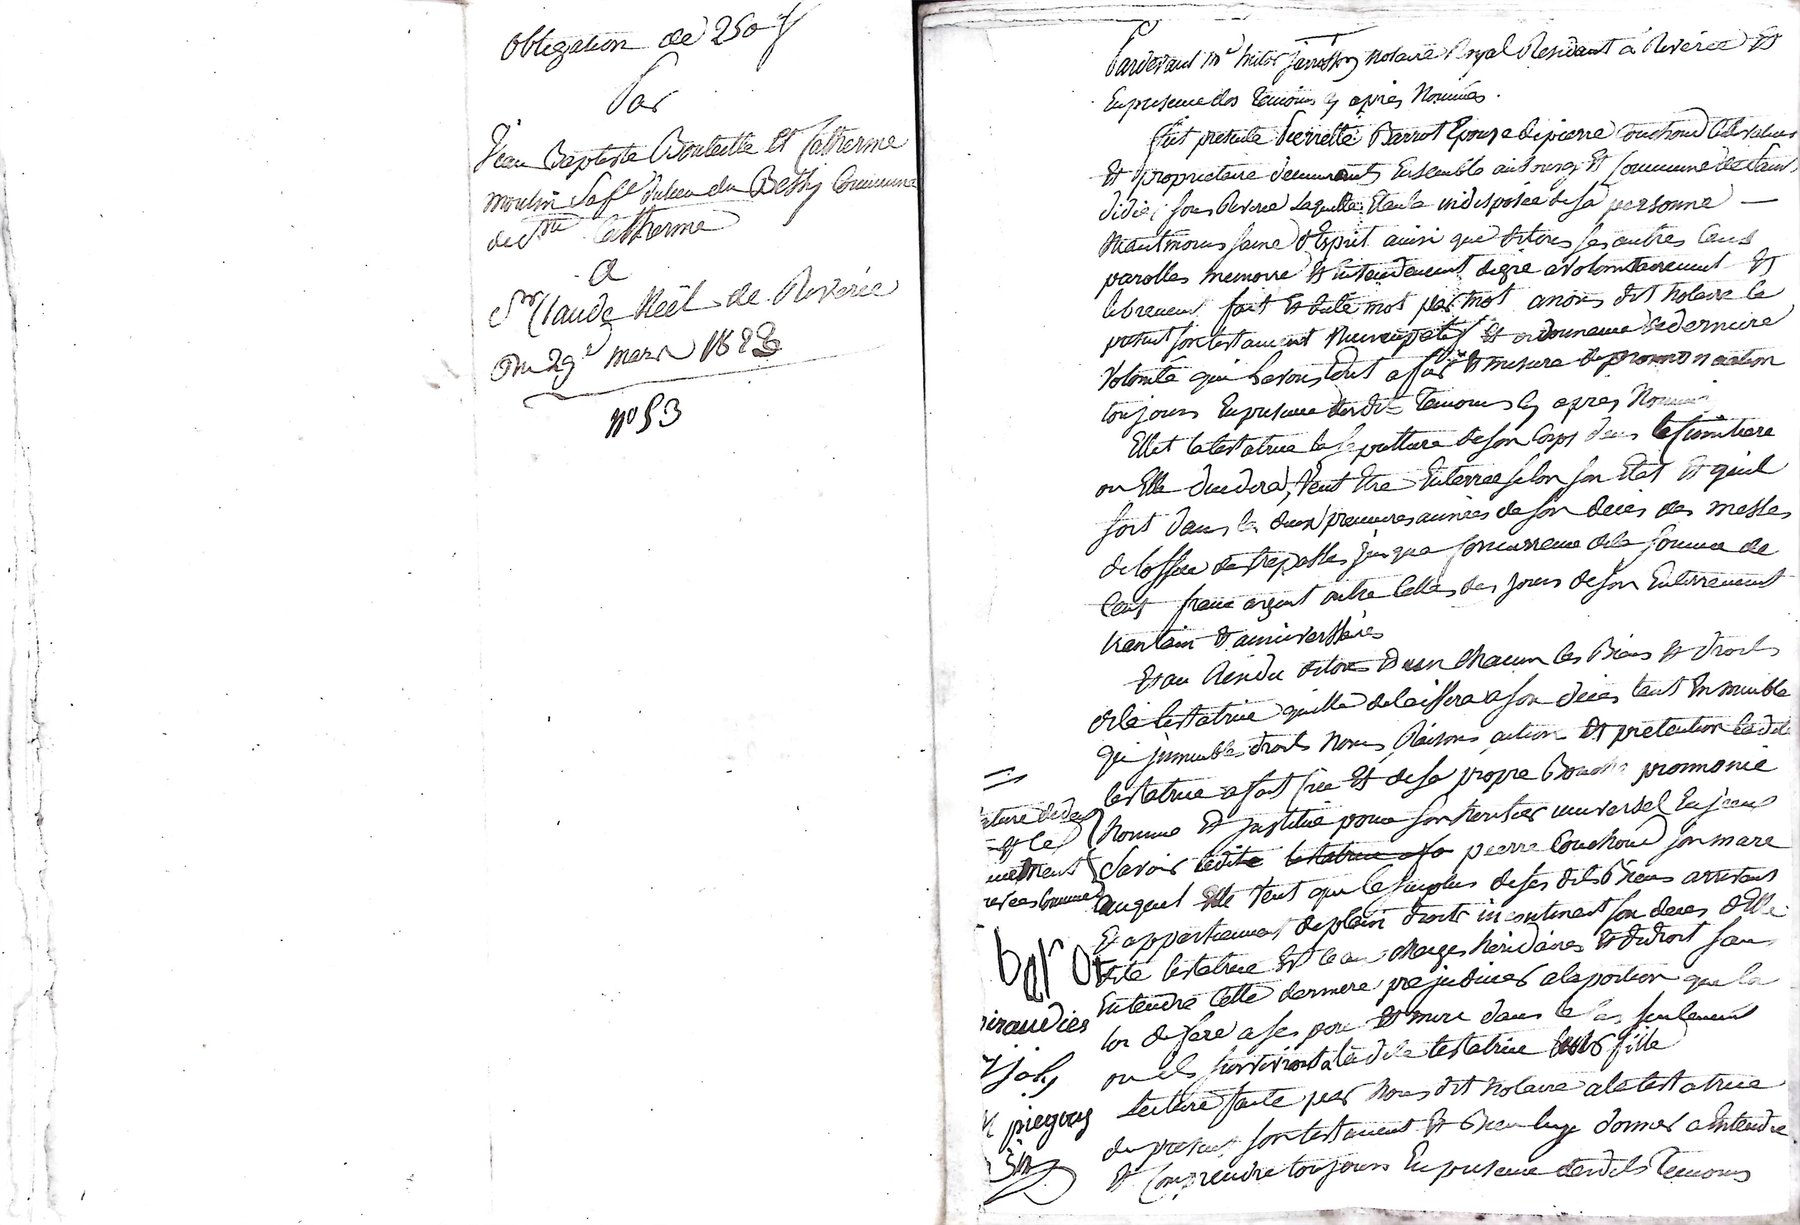 Obligation de 250 f
Par
Jean Baptiste Bouteille et Catherine
moulin sa fe du lieu du Bessy Commune
de Ste Catherine
a
Sr Claude Réél de Riverie
Du 29 mars
no 53
Pardevant Me notaire Royal Residant à Riverie Et
En presence des temoins cy apres Nommés.
fut presente Pierrette Barrot Epouse de pierre Couchoud Cultivateur
Et proprietaire demeurants Ensemble au Bourg Et Commune de Saint
didier sous Riverie laquelle Etant indisposée de sa personne
Neantmoins saine d'Esprit ainsi que de tous ses autres Sens
parolles memoire Et Entendement de gré a volontairement Et
librement fait Et dicté mot par mot a nous dit Notaire le
present son testament Nuncupatif Et ordonnance de derniere
volonté qui avons Ecrit a fur Et mesure de prononciation
toujours En presence desdits Temoins cy apres Nommés
Elit la testatrice la sepulture de son Corps dans le simitiere
ou Elle decedera, Veut Etre Enterree selon son Etat Et quil
soit dans les deux premieres années de son deces des messes
de loffice des trepassés jusque concurrence de la somme de
Cent francs argent outre Celles des jours de son Enterrement
trentain Et anniversaires
Et au Residu de tous Et un Chacun les Biens Et droits
de la testatrice quelle delaissera a son deces tant En meuble
qu'jmmubles droits Noms Raisons action Et pretention ladite
testatrice a fait cree Et de sa propre Bouche prononcé
Nommé Et jnstitué pour son heritier universel En jceux
Savoir ladite testatrice a sa pierre Couchoud son mari
auquel Elle veut que le surplus de ses dits Biens arrivent
Et appartiennent de plein droits incontinent son deces
dite testatrice Et ce aux charges heriditaires Et de droit sans
Entendre Cette derniere prejudicier a la portion que la
loi defere a ses pere Et mere dans le Cas seulement
ou ils survivront a ladite testatrice leur fille
Lecture faite par Nous dit Notaire a la testatrice
du present son testament Et Bien luy donner a Entendre
Et Comprendre toujours En presence desdits Temoins
ature de de
Et Ce
uement
rées Comme
barot
iraudier
joly
piegay